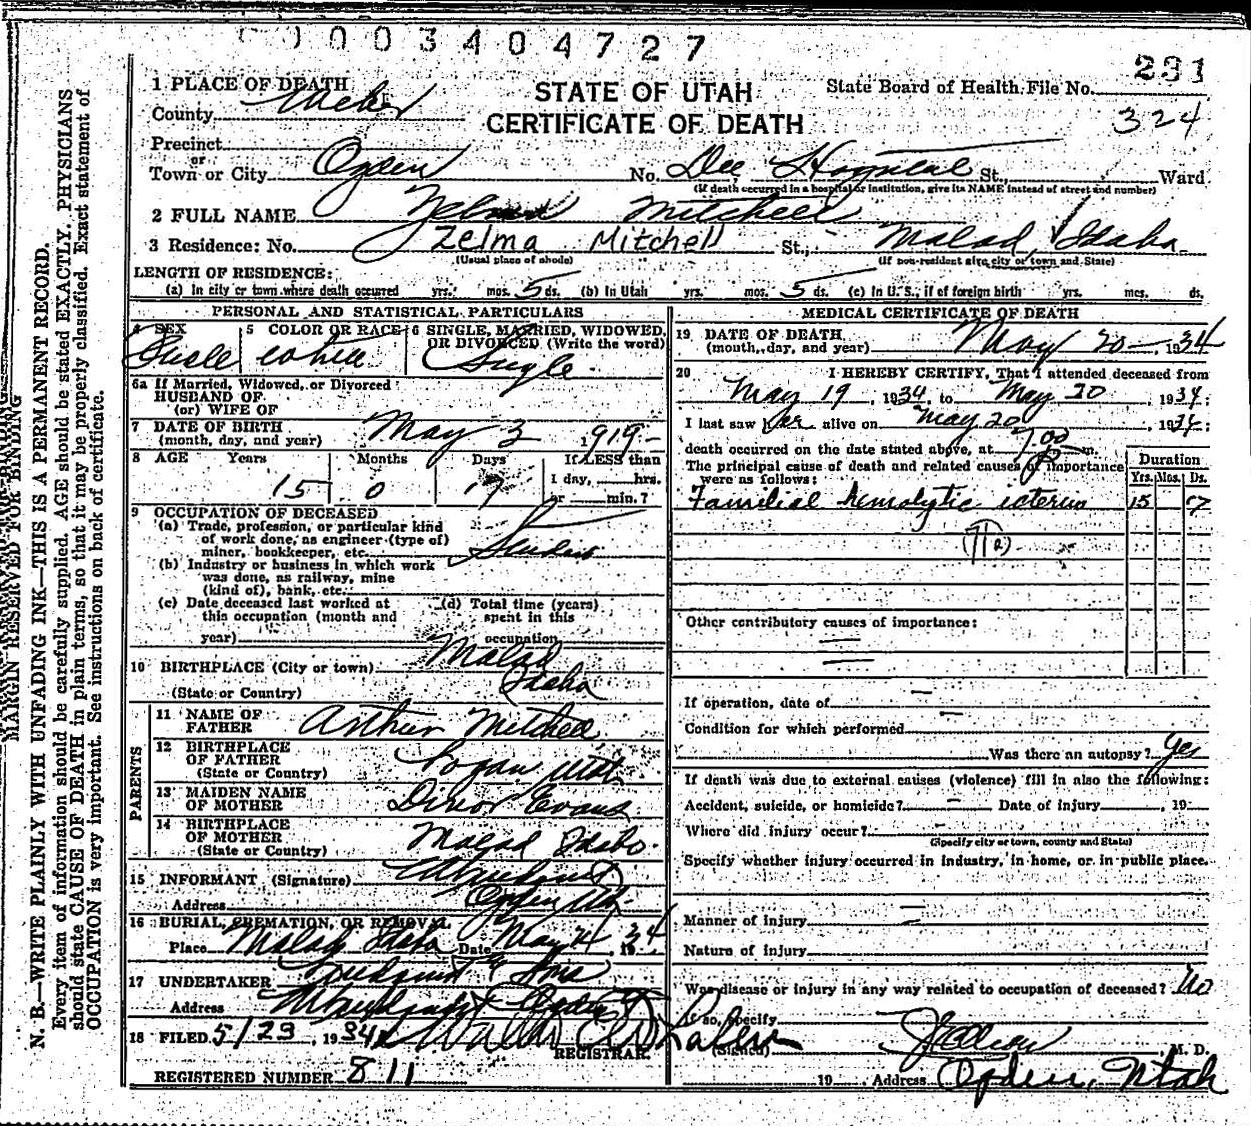 0003404727
231
1 PLACE OF DEATH
STATE OF UTAH
State Board of Health File No.
County Weber
CERTIFICATE OF DEATH
324
Precinct
or
Town or City Ogden No. Dee Hospital St., Ward
(If death occurred in a hospital or institution, give its NAME instead of street and number)
2 FULL NAME Zelma Mitchell
3 Residence: No. Zelma Mitchell St., Malad, Idaho
(Usual place of abode) (If non-resident give city or town and State)
LENGTH OF RESIDENCE:
(a) In city or town where death occurred yrs. mos. 5 ds. (b) In Utah yrs. mos. 5 ds. (c) In U.S., if of foreign birth yrs. mos. ds.
PERSONAL AND STATISTICAL PARTICULARS
4 SEX 5 COLOR OR RACE 6 SINGLE, MARRIED, WIDOWED,
OR DIVORCED (Write the word)
white Single
6a If Married, Widowed, or Divorced
HUSBAND OF
(or) WIFE OF
7 DATE OF BIRTH
(month, day, and year) May 3 1919-
8 AGE Years Months Days If LESS than
15 0 17 1 day, hrs.
or min.?
9 OCCUPATION OF DECEASED
(a) Trade, profession, or particular kind
of work done, as engineer (type of)
miner, bookkeeper, etc. Student
(b) Industry or business in which work
was done, as railway, mine
(kind of), bank, etc.
(c) Date deceased last worked at (d) Total time (years)
this occupation (month and spent in this
year) occupation
10 BIRTHPLACE (City or town) Malad
(State or Country) Idaho
PARENTS
11 NAME OF
FATHER Arthur Mitchell
12 BIRTHPLACE
OF FATHER
(State or Country) Logan Utah
13 MAIDEN NAME
OF MOTHER Evans
14 BIRTHPLACE
OF MOTHER
(State or Country) Malad Idaho.
15 INFORMANT (Signature)
Address Ogden Ut.
16 BURIAL, CREMATION, OR REMOVAL
Place Malad Idaho Date May 24, 1934
17 UNDERTAKER & Sons
Address Ogden
18 FILED 5/23, 1934
REGISTRAR.
REGISTERED NUMBER 811
MEDICAL CERTIFICATE OF DEATH
19 DATE OF DEATH
(month, day, and year) May 20-, 1934
20 I HEREBY CERTIFY, That I attended deceased from
May 19, 1934, to May 20, 1934;
I last saw her alive on May 20, 1934;
death occurred on the date stated above, at 7:00 m.
The principal cause of death and related causes of importance
were as follows:
Duration
Yrs. Mos. Ds.
Familial hemolytic icterus 15 17
Other contributory causes of importance:
If operation, date of
Condition for which performed
Was there an autopsy? Yes
If death was due to external causes (violence) fill in also the following:
Accident, suicide, or homicide? Date of injury , 19
Where did injury occur?
(Specify city or town, county and State)
Specify whether injury occurred in industry, in home, or in public place.
Manner of injury
Nature of injury
Was disease or injury in any way related to occupation of deceased? No
If so, specify
(Signed) , M. D.
19 Address Ogden, Utah
MARGIN RESERVED FOR BINDING
N. B.—WRITE PLAINLY WITH UNFADING INK—THIS IS A PERMANENT RECORD.
Every item of information should be carefully supplied. AGE should be stated EXACTLY. PHYSICIANS
should state CAUSE OF DEATH in plain terms, so that it may be properly classified. Exact statement of
OCCUPATION is very important. See instructions on back of certificate.